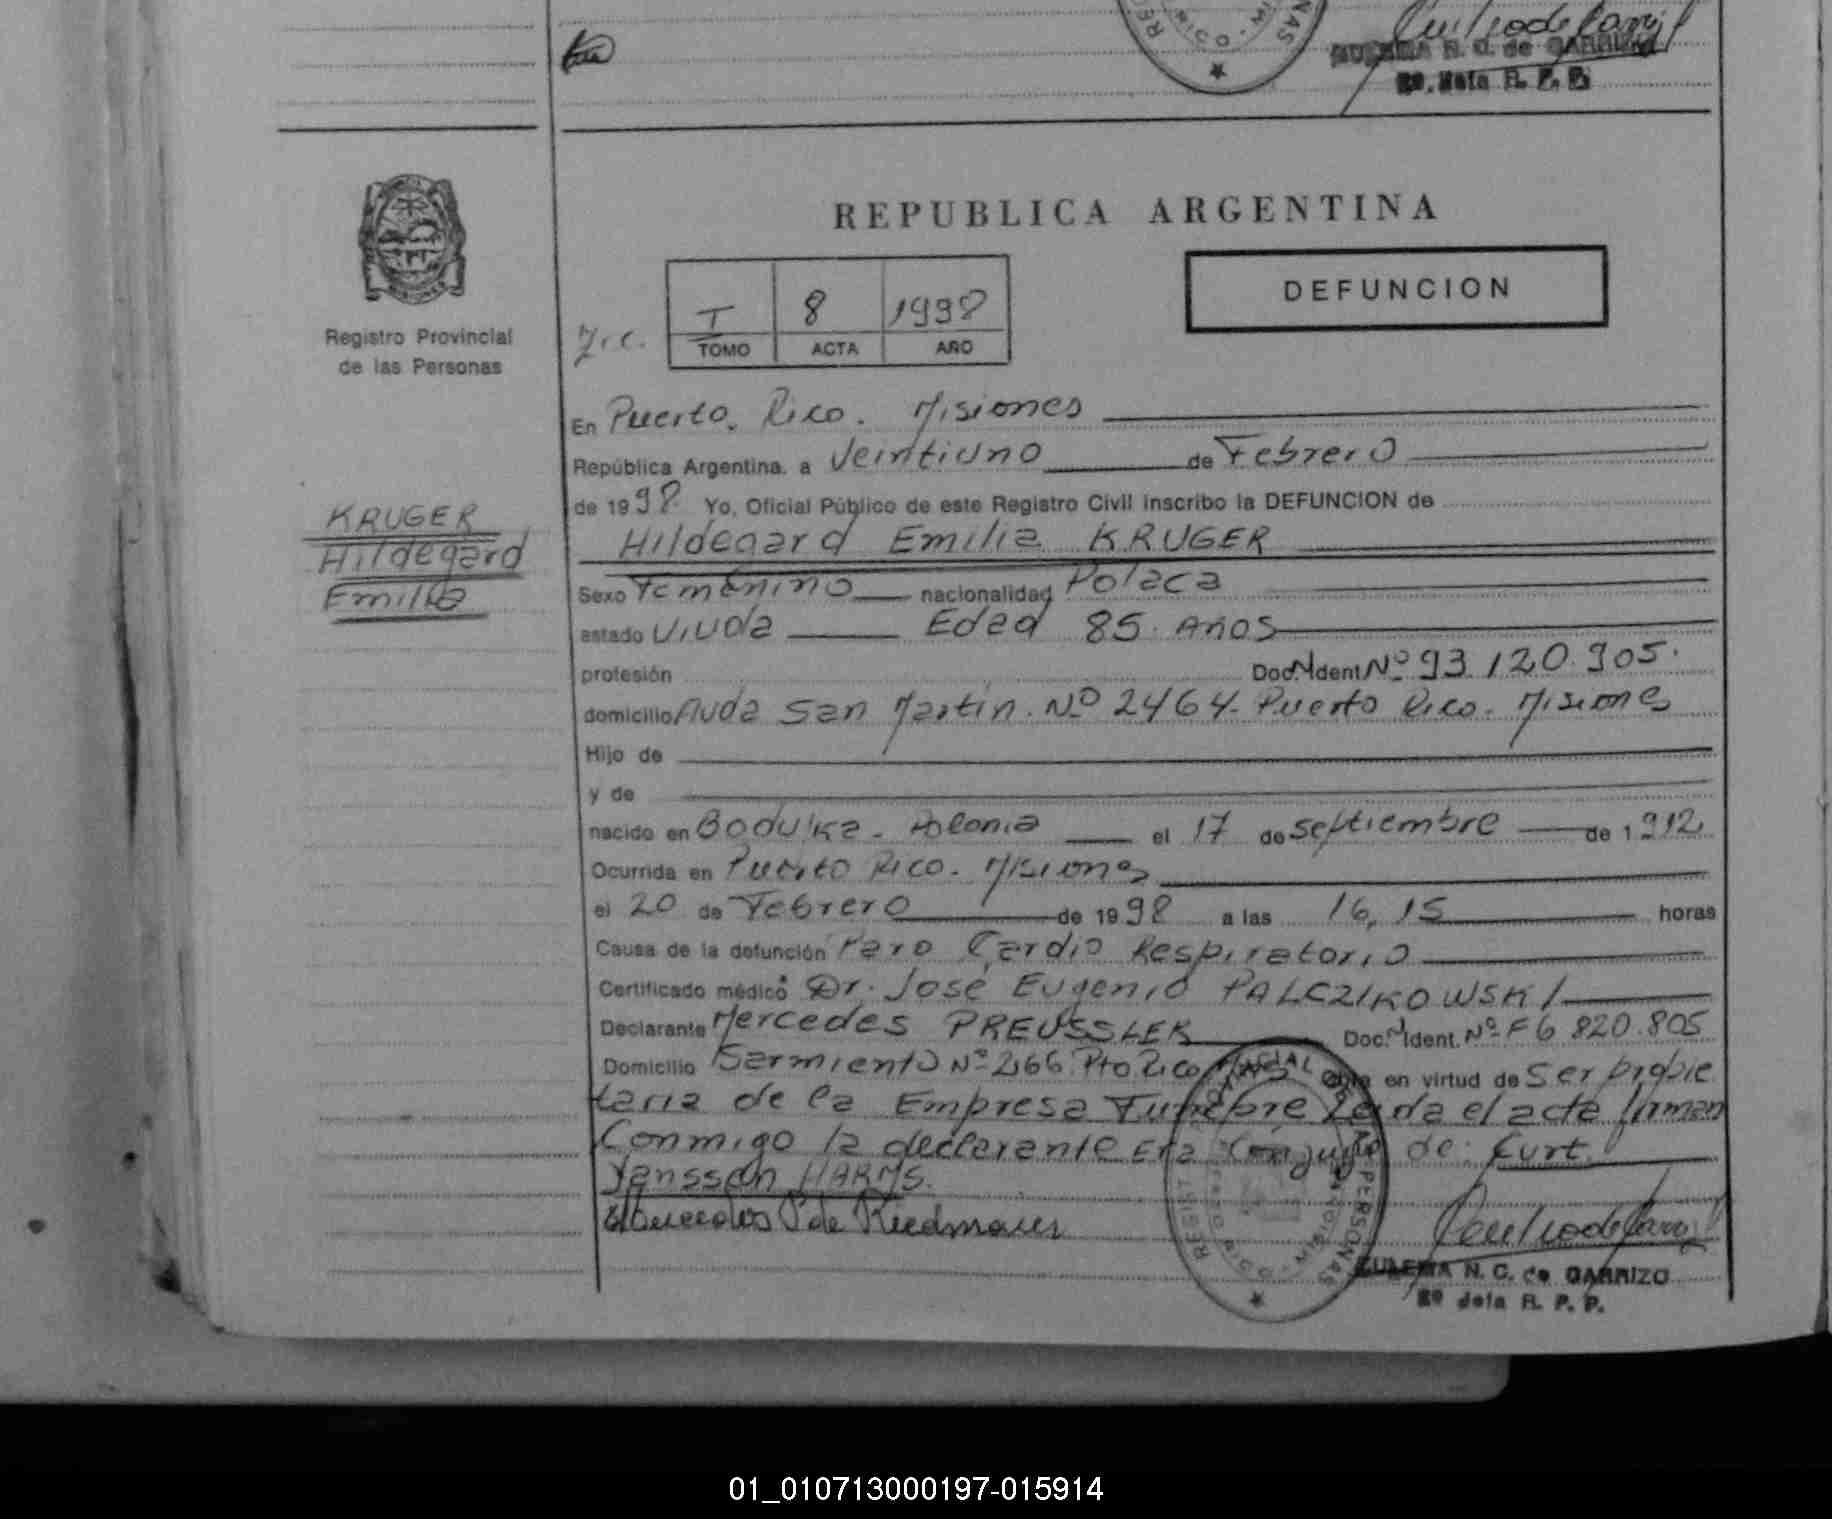 ZULEMA N. C. de CARRIZO
2º Jefa R. P. P.
Registro Provincial
de las Personas
REPUBLICA ARGENTINA
DEFUNCION
I 8 1998
TOMO ACTA AÑO
En Puerto Rico. Misiones
República Argentina, a Veintiuno de Febrero
de 1998 Yo, Oficial Público de este Registro Civil inscribo la DEFUNCION de
KRUGER
Hildegard
Emilia
Hildegard Emilia KRUGER
Sexo Femenino nacionalidad Polaca
estado Viuda Edad 85. Años
profesión Doc.N.Ident Nº 93.120.905.
domicilio Avda San Martin. Nº 2464. Puerto Rico. Misiones
Hijo de
y de
nacido en Bodulka - Polonia el 17 de septiembre de 1912
Ocurrida en Puerto Rico. Misiones
el 20 de Febrero de 1998 a las 16,15 horas
Causa de la defunción Paro Cardio Respiratorio
Certificado médico Dr. José Eugenio PALCZIKOWSKI
Declarante Mercedes PREUSSLER Doc.N.Ident. Nº F6 820.805
Domicilio Sarmiento Nº 2166 Pto Rico Mnes en virtud de ser propie
taria de la Empresa Funebre Leida el acta firman
Conmigo la declarante Era Conyuge de: Curt
Janssen HARMS.
Mercedes P de Riedmaier
ZULEMA N. C. de CARRIZO
2º Jefa R. P. P.
01_010713000197-015914